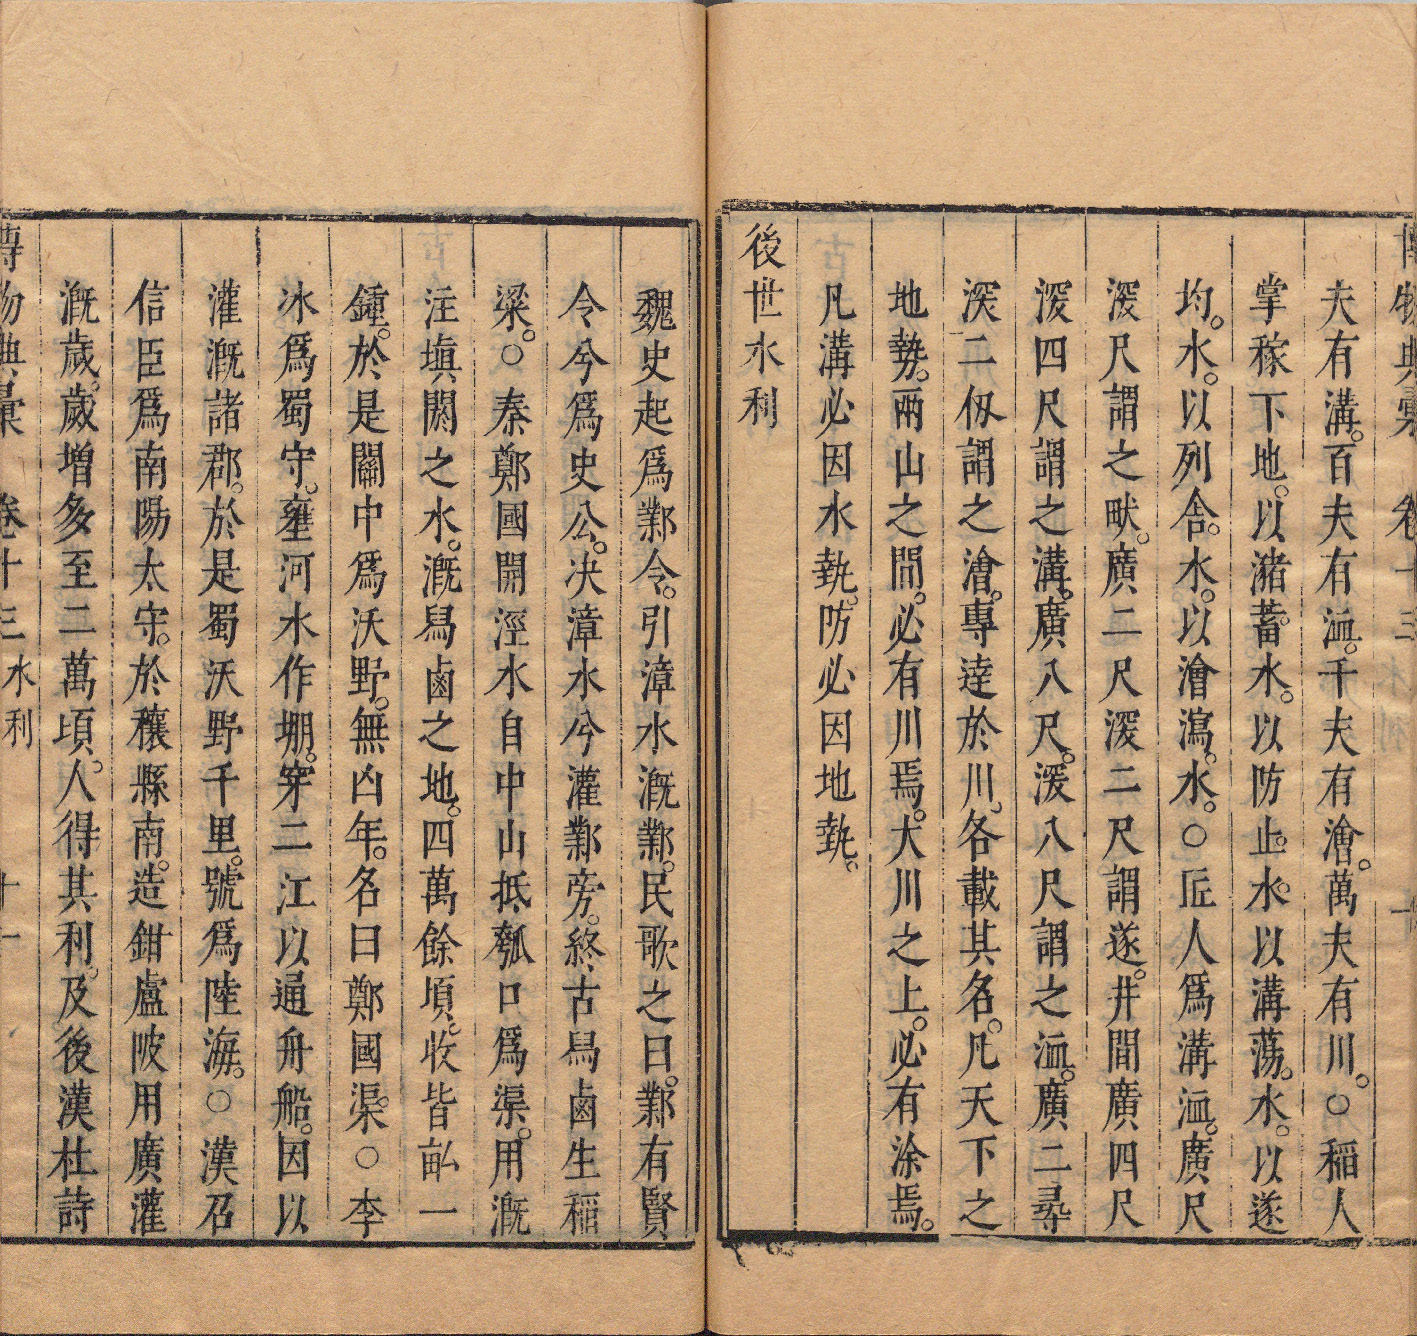 博物典彙 卷十三 水利 十
夫有溝。百夫有洫。千夫有澮。萬夫有川。○稻人
掌稼下地。以瀦蓄水。以防止水。以溝蕩水。以遂
均水。以列舍水。以澮瀉水。○匠人爲溝洫。廣尺
深尺謂之畎。廣二尺深二尺謂遂。井間廣四尺
深四尺謂之溝。廣八尺。深八尺謂之洫。廣二尋
深二仭謂之澮。專達於川。各載其名。凡天下之
地勢。兩山之間。必有川焉。大川之上。必有涂焉。
凡溝必因水埶。防必因地埶。
後世水利
魏史起爲鄴令。引漳水漑鄴。民歌之曰。鄴有賢
令兮爲史公。决漳水兮灌鄴旁。終古舄鹵生稻
粱。○秦鄭國開涇水自中山抵瓠口爲渠。用漑
注塡閼之水。漑舄鹵之地。四萬餘頃。收皆畝一
鍾。於是關中爲沃野。無凶年。名曰鄭國渠。○李
冰爲蜀守。壅河水作堋。穿二江以通舟船。因以
灌漑諸郡。於是蜀沃野千里。號爲陸海。○漢召
信臣爲南陽太守。於穰縣南。造鉗盧陂用廣灌
漑歲。歲增多至二萬頃。人得其利。及後漢杜詩
博物典彙 卷十三 水利 十一